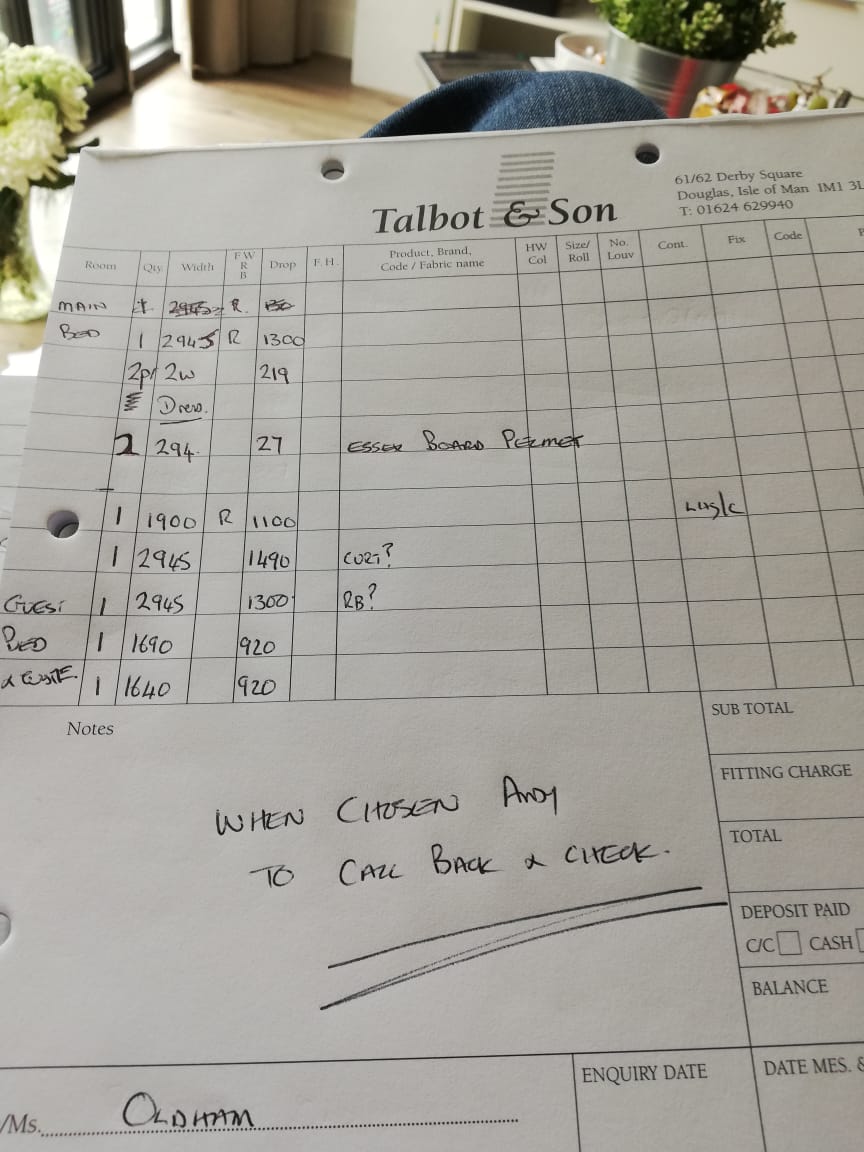 61/62 Derby Square
Douglas, Isle of Man IM1 3L
T: 01624 629940
Talbot & Son
Room Qty Width F W R B Drop F.H. Product, Brand, Code / Fabric name HW Col Size/ Roll No. Louv Cont. Fix Code P
MAIN R.
BED 1 2945 R 1300
2pr 2w 219
Dress.
2 294. 27 ESSEX BOARD PELMET
1 1900 R 1100
1 2945 1490 CURT?
GUEST 1 2945 1300 RB?
BED 1 1690 920
& 1 1640 920
Notes
WHEN CHOSEN ANDY
TO CALL BACK & CHECK.
SUB TOTAL
FITTING CHARGE
TOTAL
DEPOSIT PAID
C/C CASH
BALANCE
ENQUIRY DATE
DATE MES. &
/Ms. OLDHAM